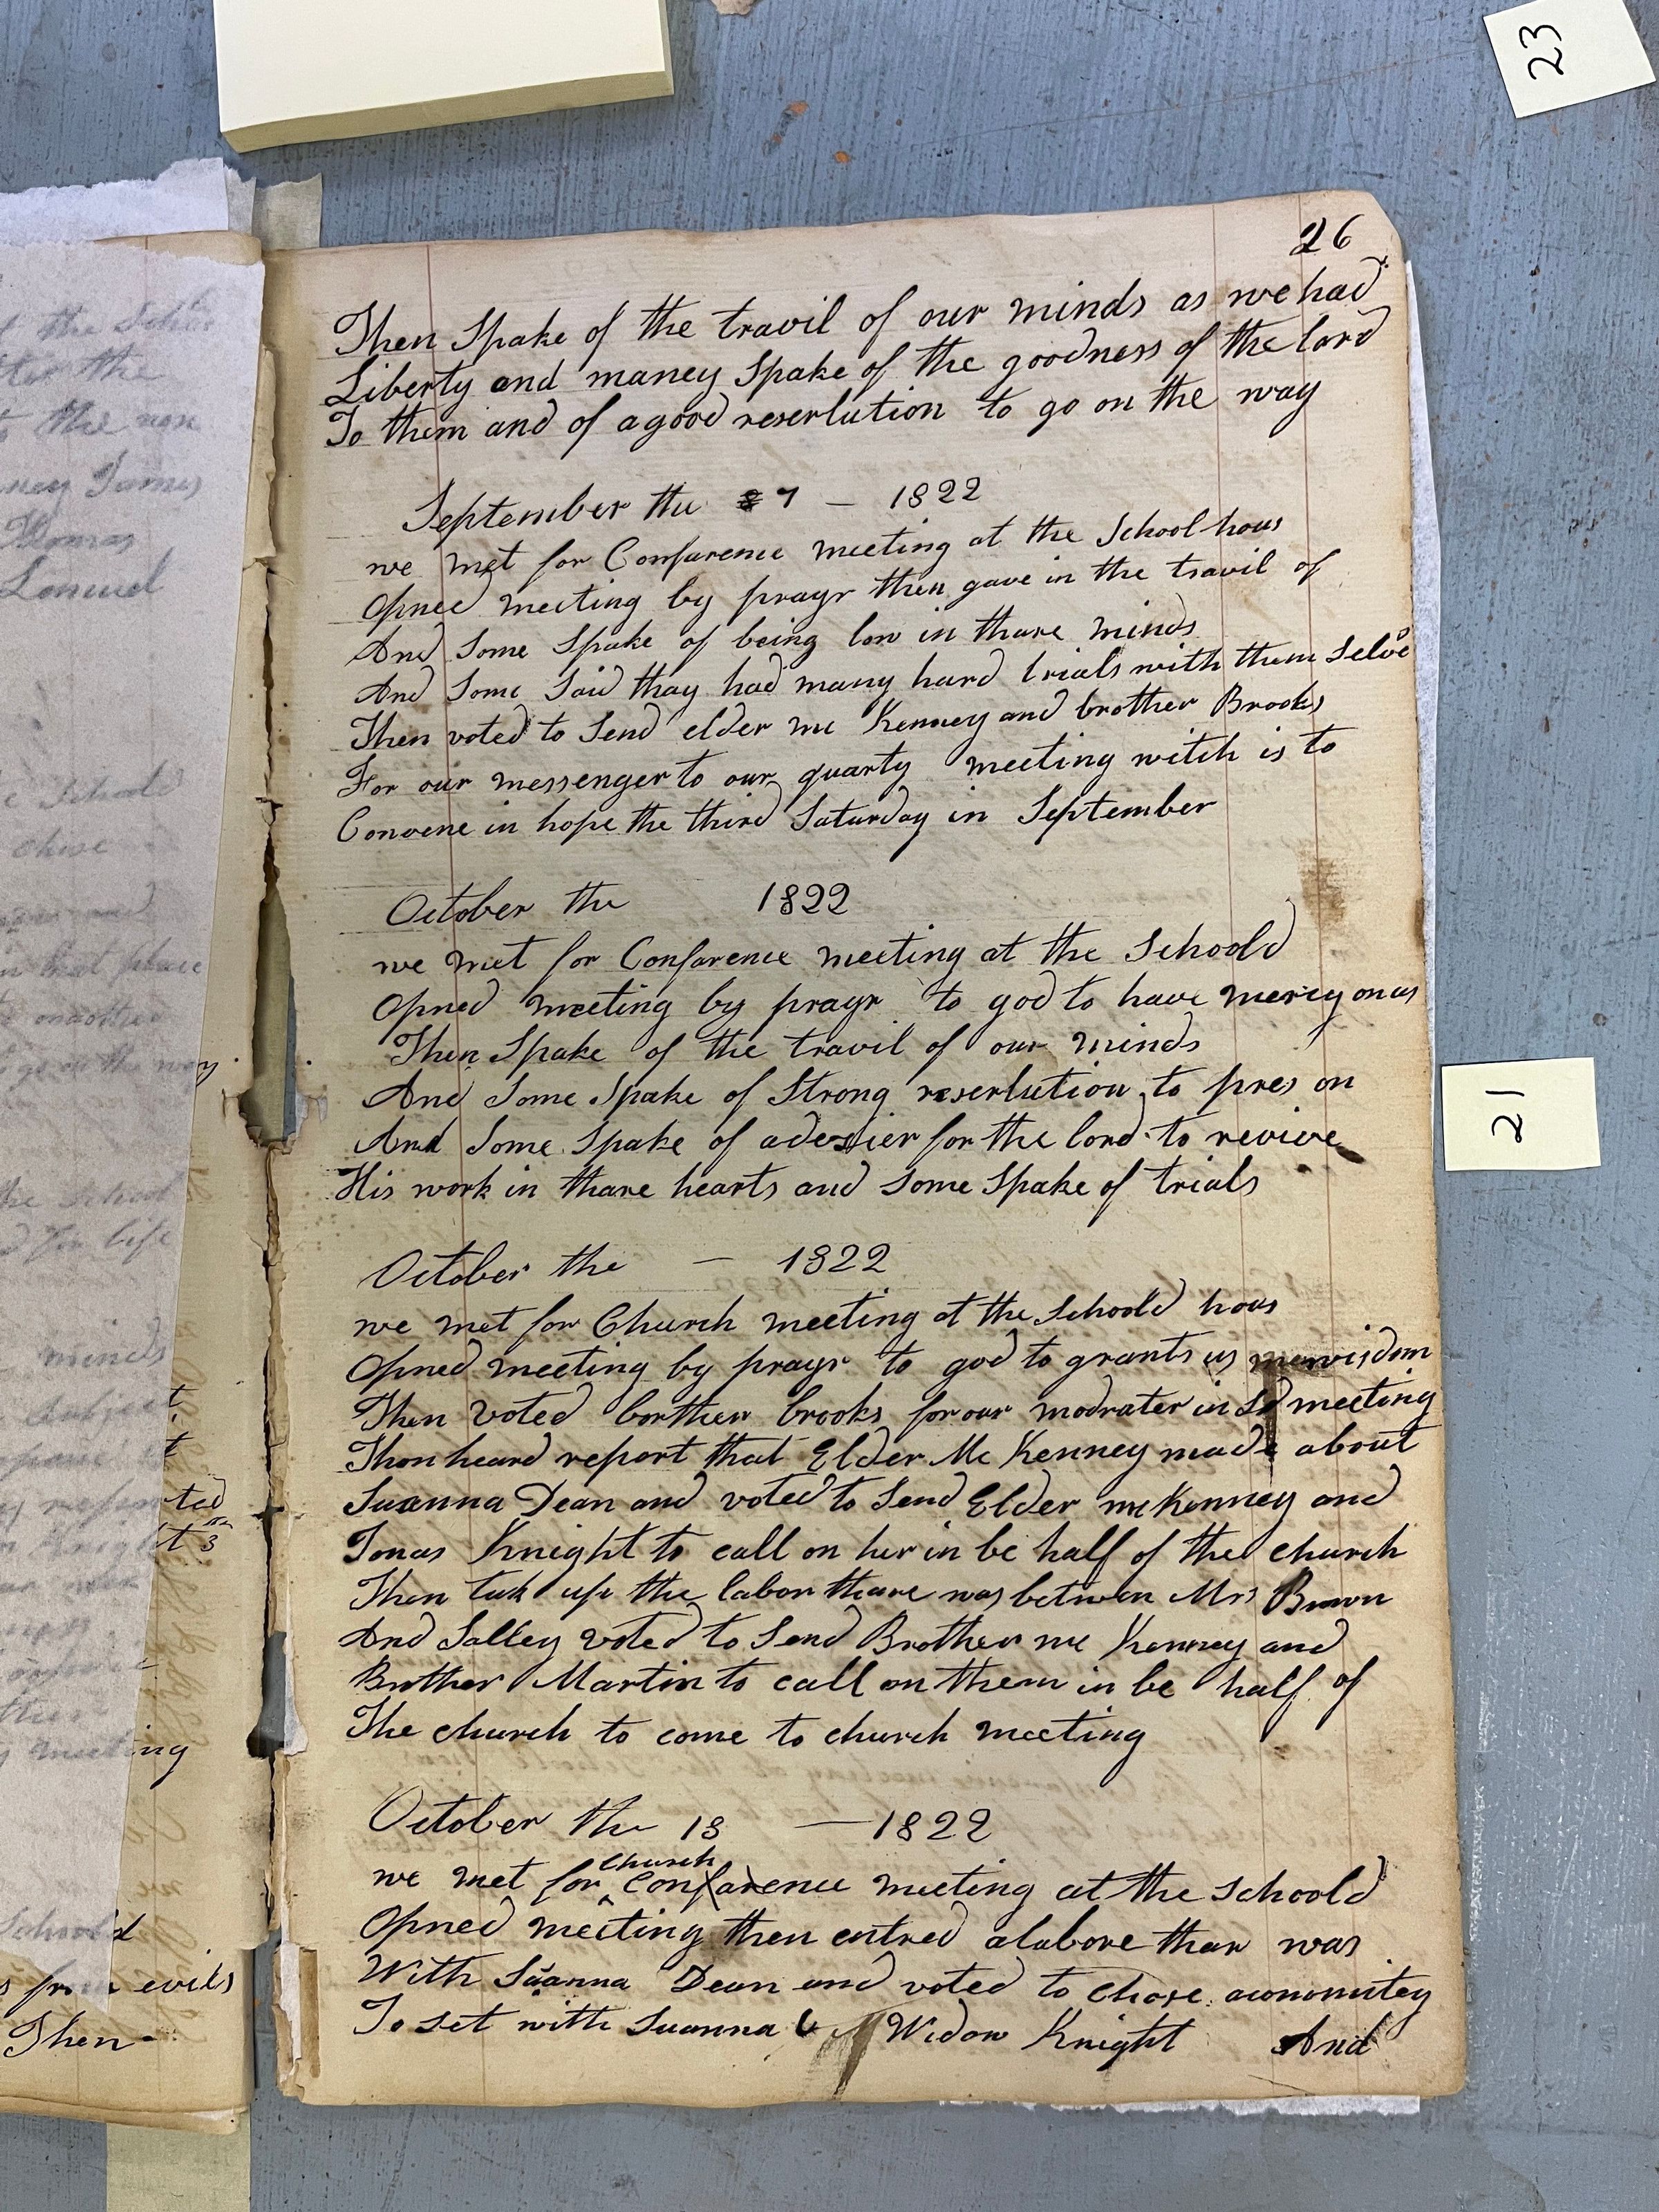 23
26
Then Spake of the travil of our minds as we had
Liberty and maney Spake of the goodness of the lord
To them and of a good reserlution to go on the way
September the 7 — 1822
we met for Confarence meeting at the School hous
Opned meeting by prayr then gave in the travil of
And Some Spake of being low in thare minds
And Some Said thay had many hard trials with them Selve
Then voted to Send elder mc Kenney and brother Brooks
For our messenger to our quarty meeting witch is to
Convene in hope the third Saturday in September
October the 1822
we met for Confarence meeting at the Schoold
Opned meeting by prayr to god to have mercy on us
Then Spake of the travil of our minds
And Some Spake of Strong reserlution to pres on
And Some Spake of a desier for the lord to revive
His work in thare hearts and Some Spake of trials
21
October the — 1822
we met for Church meeting at the Schoold hous
Opned meeting by prayr to god to grants us wisdom
Then Voted borther brooks for our modrater in Sd meeting
Then heard report that Elder Mc Kenney made about
Suanna Dean and voted to Send Elder mc Kenney and
Jonas Knight to call on her in be half of the church
Then tuk up the labor thare was betwen Mrs Brown
And Salley voted to Send Brother mc Kenney and
Brother Martin to call on them in be half of
The church to come to church meeting
October the 13 — 1822
church
we met for Confarence meeting at the Schoold
Opned meeting then entred a labore thar was
With Suanna Dean and voted to Chose a commitey
To set with Suanna Widow Knight And
the School
minds
meeting
evils
Then -